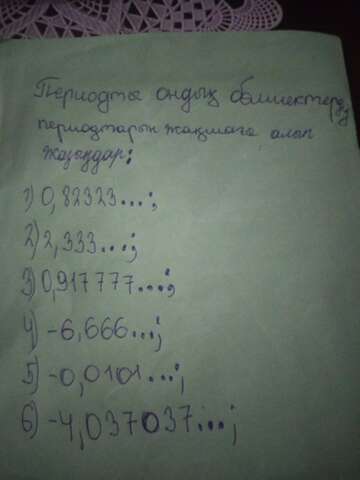 Периодты ондық бөлшектердің
периодтарын жақшаға алып
жазыңдар:
1) 0,82323...;
2) 2,333...;
3) 0,917777...;
4) -6,666...;
5) -0,0101...;
6) -4,037037...;